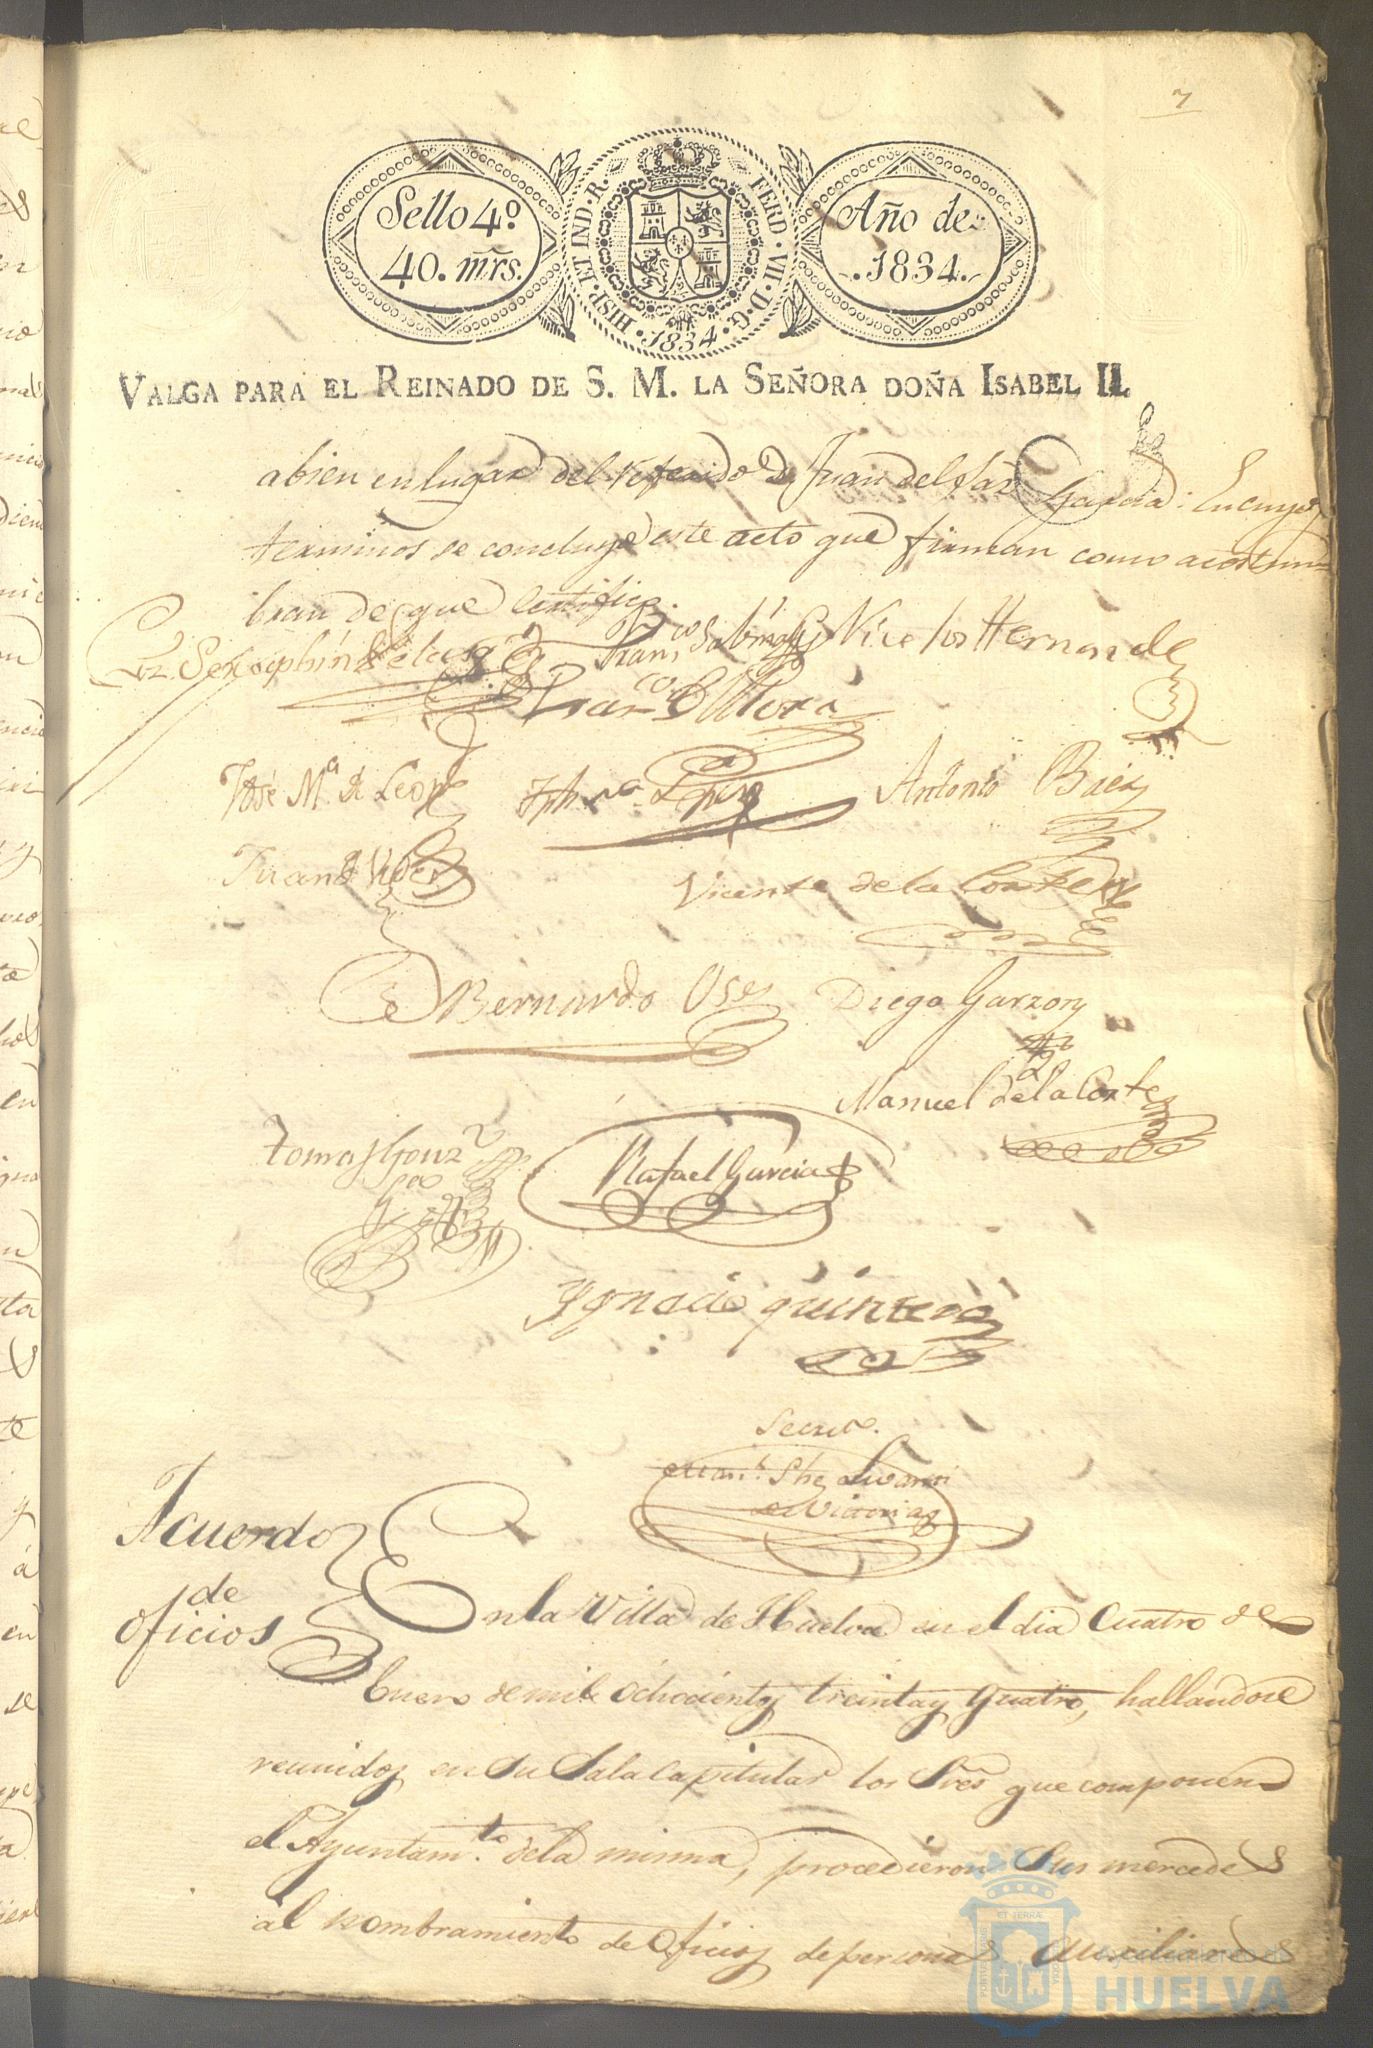 7
Sello 4º
40. mrs.
HISP. ET IND. R. FERD. VII. D. G.
1834
Año de
1834.
VALGA PARA EL REINADO DE S. M. LA SEÑORA DOÑA ISABEL II.
abien en lugar del referido Dn Juan del Garcia: En cuyos
terminos se concluye este acto que firman como acostum=
bran de que Certifico.
Vice los Hernande
Franco Mora
José Mª de Leon
Lopez
Antonio Baez
Vicente de la Corte
Bernardo Ose
Diego Garzon
Manuel de la Corte
Tomas Gonz
Rafael Garcia
Ygnacio quintero
Secreto.
de Victoria
Acuerdo
de
oficios
En la Villa de Huelva en el dia Cuatro de
Enero de mil ochocientos treinta y quatro, hallandose
reunidos en su Sala Capitular los Sres que componen
el Ayuntam.to de la misma, procedieron Sus mercedes
al nombramiento de Oficios de personas Auxiliares
ET TERRÆ
Ayuntamiento de
HUELVA